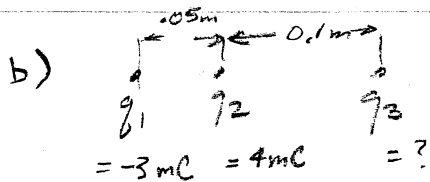 .05m 0.1m
b)
q₁ q₂ q₃
= -3 mC = 4 mC = ?